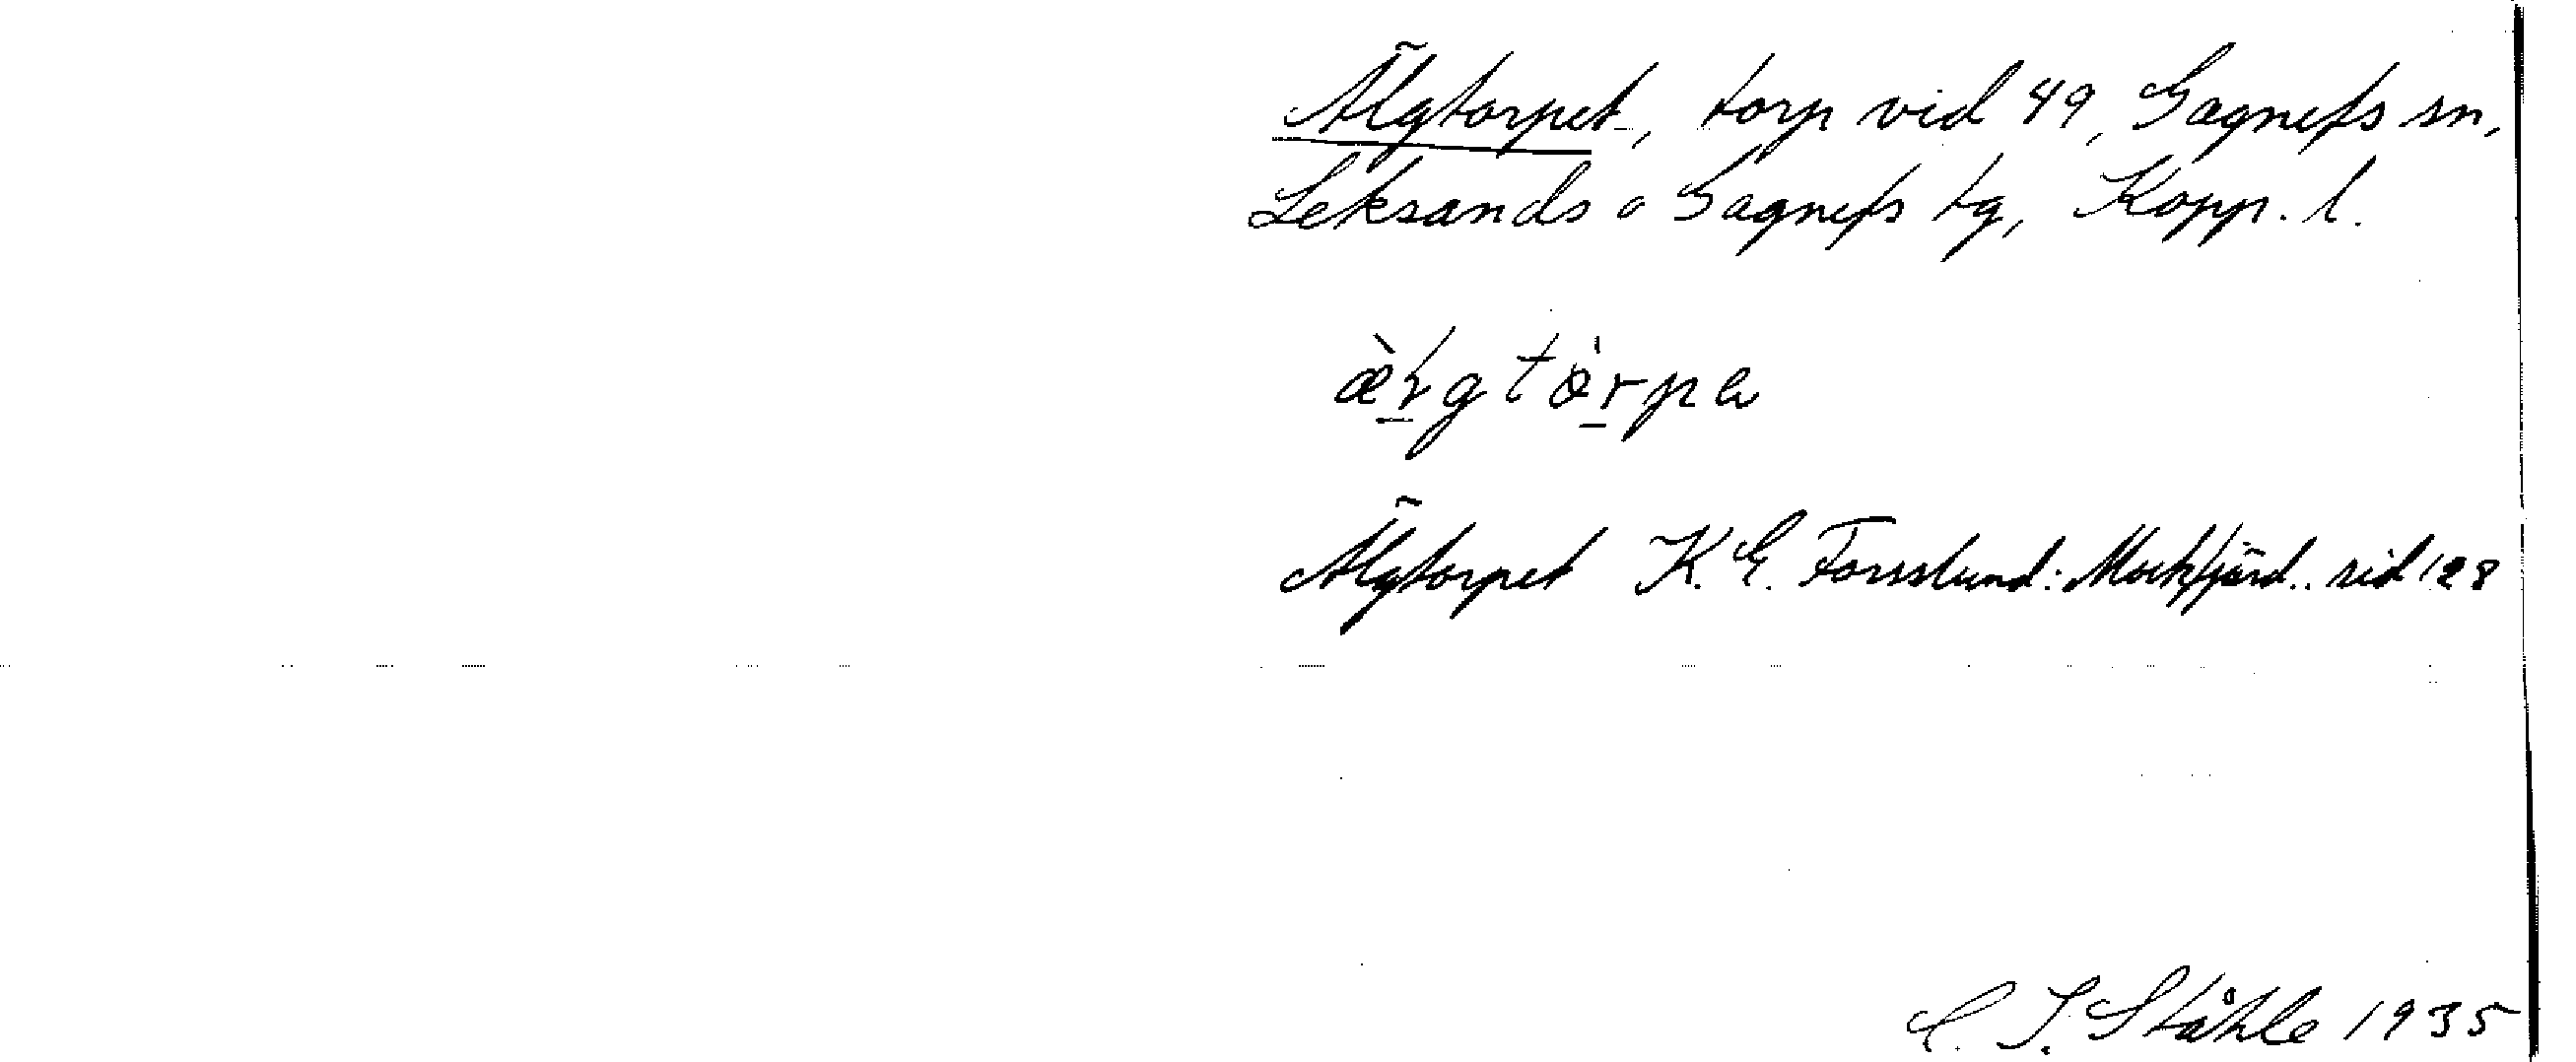 Älgtorpet, torp vid 49, Gagnefs sn,
Leksands o Gagnefs tg, Kopp. l.
Älgtorpet K. E. Forsslund: Mockfjärd.. sid 128
C. I. Ståhle 1935